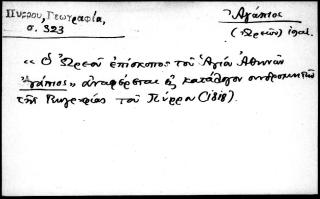 Πύρρου, Γεωγραφία,
σ. 323
Ἀγάπιος
(Ὠρεῶν) ἐπίσκ.
«Ὁ Ὠρεῶν ἐπίσκοπος τοῦ Ἁγίου Ἀθηνῶν
Ἀγάπιος» ἀναφέρεται εἰς κατάλογον συνδρομητῶν
τῆς Γεωγραφίας τοῦ Πύρρου (1818).